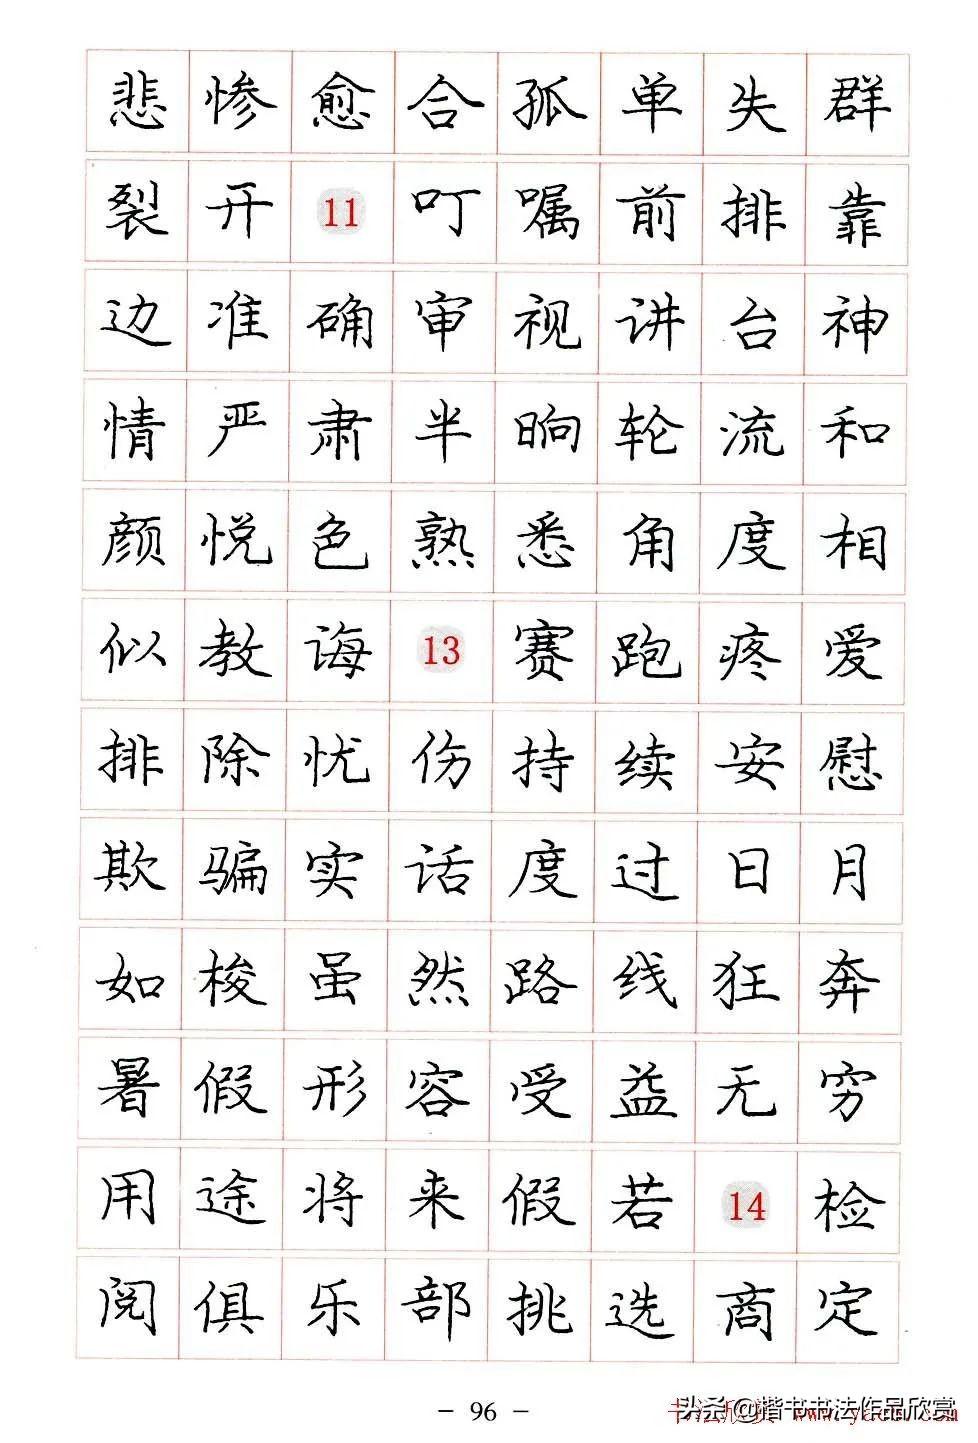 悲惨愈合孤单失群
裂开11叮嘱前排靠
边准确审视讲台神
情严肃半晌轮流和
颜悦色熟悉角度相
似教诲13赛跑疼爱
排除忧伤持续安慰
欺骗实话度过日月
如梭虽然路线狂奔
暑假形容受益无穷
用途将来假若14检
阅俱乐部挑选商定
- 96 -
头条@楷书书法作品欣赏